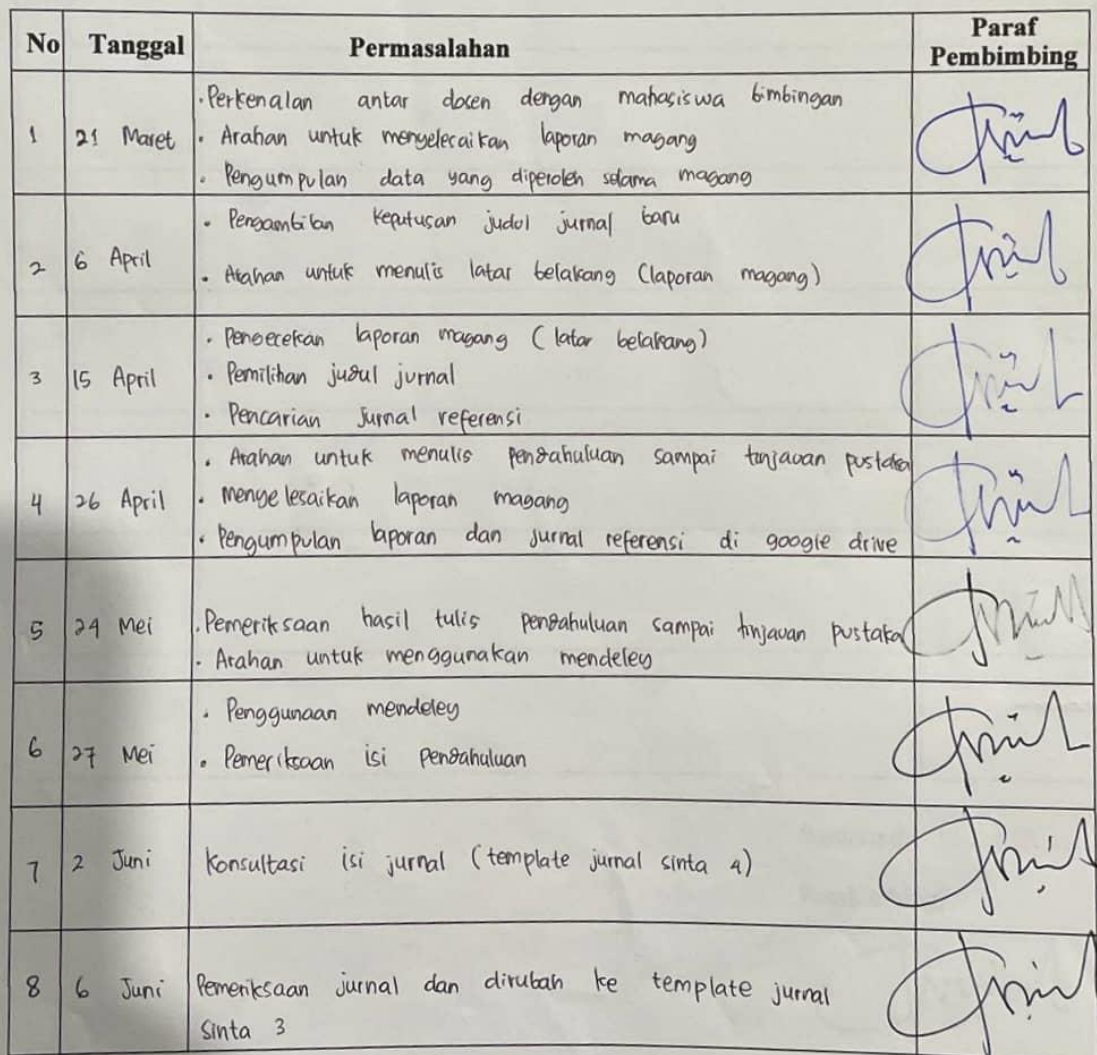 No Tanggal Permasalahan Paraf Pembimbing
1 21 Maret
· Perkenalan antar dosen dengan mahasiswa bimbingan
· Arahan untuk menyelesaikan laporan magang
· Pengumpulan data yang diperoleh selama magang
2 6 April
· Pengambilan keputusan judul jurnal baru
· Arahan untuk menulis latar belakang (laporan magang)
3 15 April
· Pengecekan laporan magang (latar belakang)
· Pemilihan judul jurnal
· Pencarian Jurnal referensi
4 26 April
· Arahan untuk menulis pendahuluan sampai tinjauan pustaka
· Menyelesaikan laporan magang
· Pengumpulan laporan dan jurnal referensi di google drive
5 24 Mei
· Pemeriksaan hasil tulis pendahuluan sampai tinjauan pustaka
· Arahan untuk menggunakan mendeley
6 27 Mei
· Penggunaan mendeley
· Pemeriksaan isi pendahuluan
7 2 Juni
Konsultasi isi jurnal (template jurnal sinta 4)
8 6 Juni
Pemeriksaan jurnal dan dirubah ke template jurnal
sinta 3